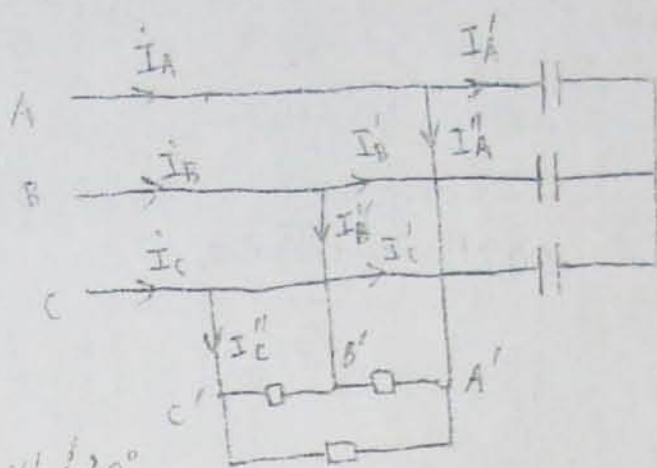 İ_A I_A'
A I_A''
İ_B I_B'
B I_B''
İ_C I_C'
C I_C''
B'
C' A'